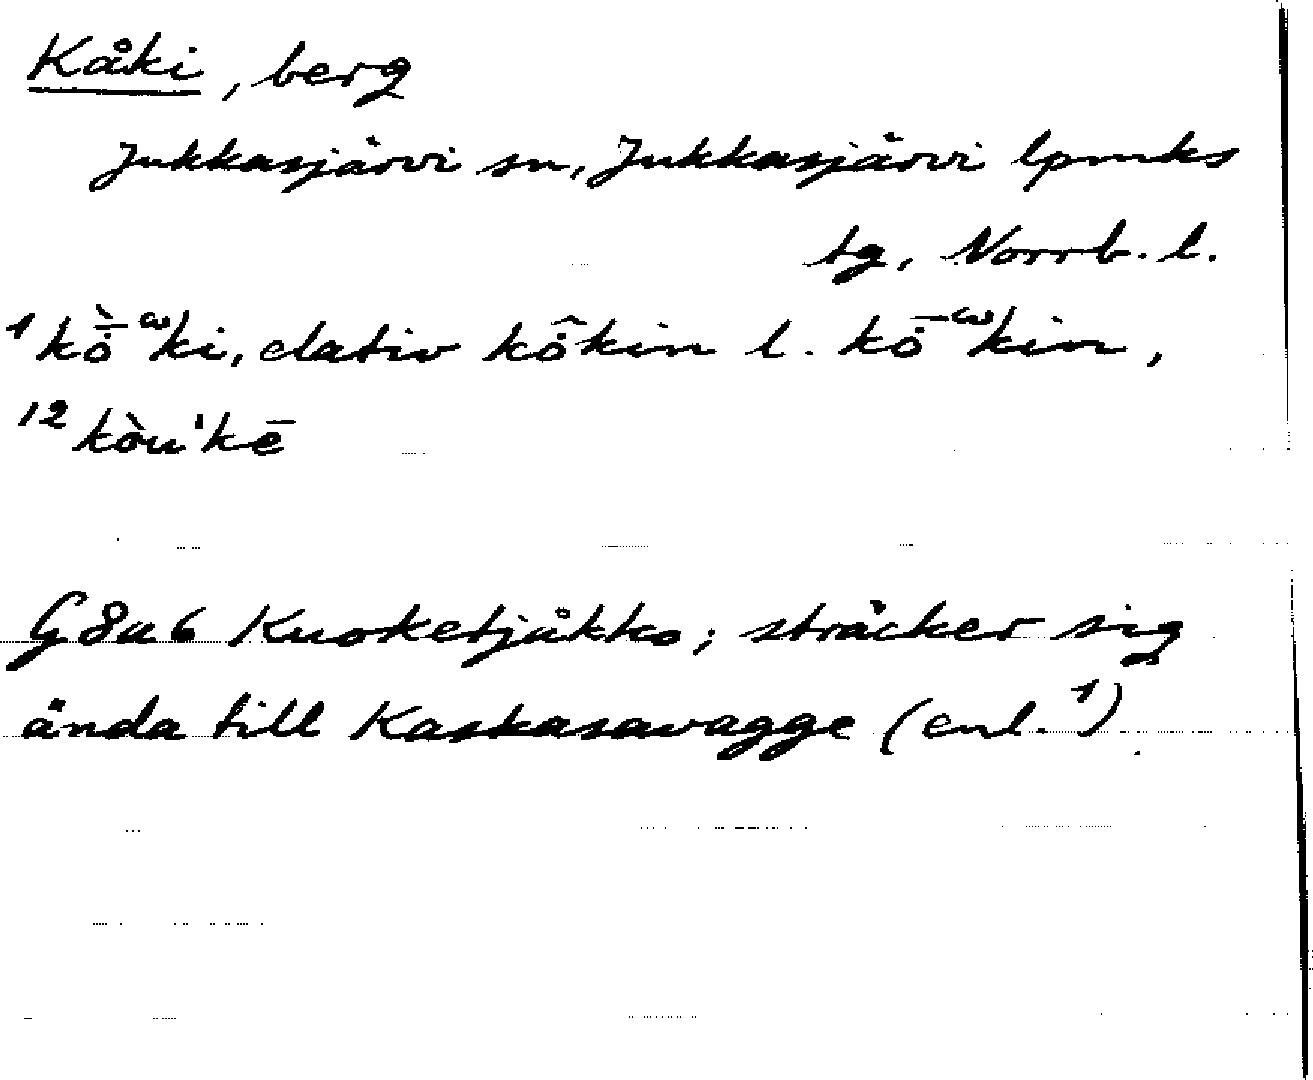 Kåki, berg
Jukkasjärvi sn, Jukkasjärvi lpmks
tg, Norrb. l.
¹ kṑ̖ʷki, elativ kộ̂kin l. kō̇ʷkin,
¹² kòu'kē
G8u6 Kuoketjåkko; sträcker sig
ända till Kaskasavagge (enl. ¹)